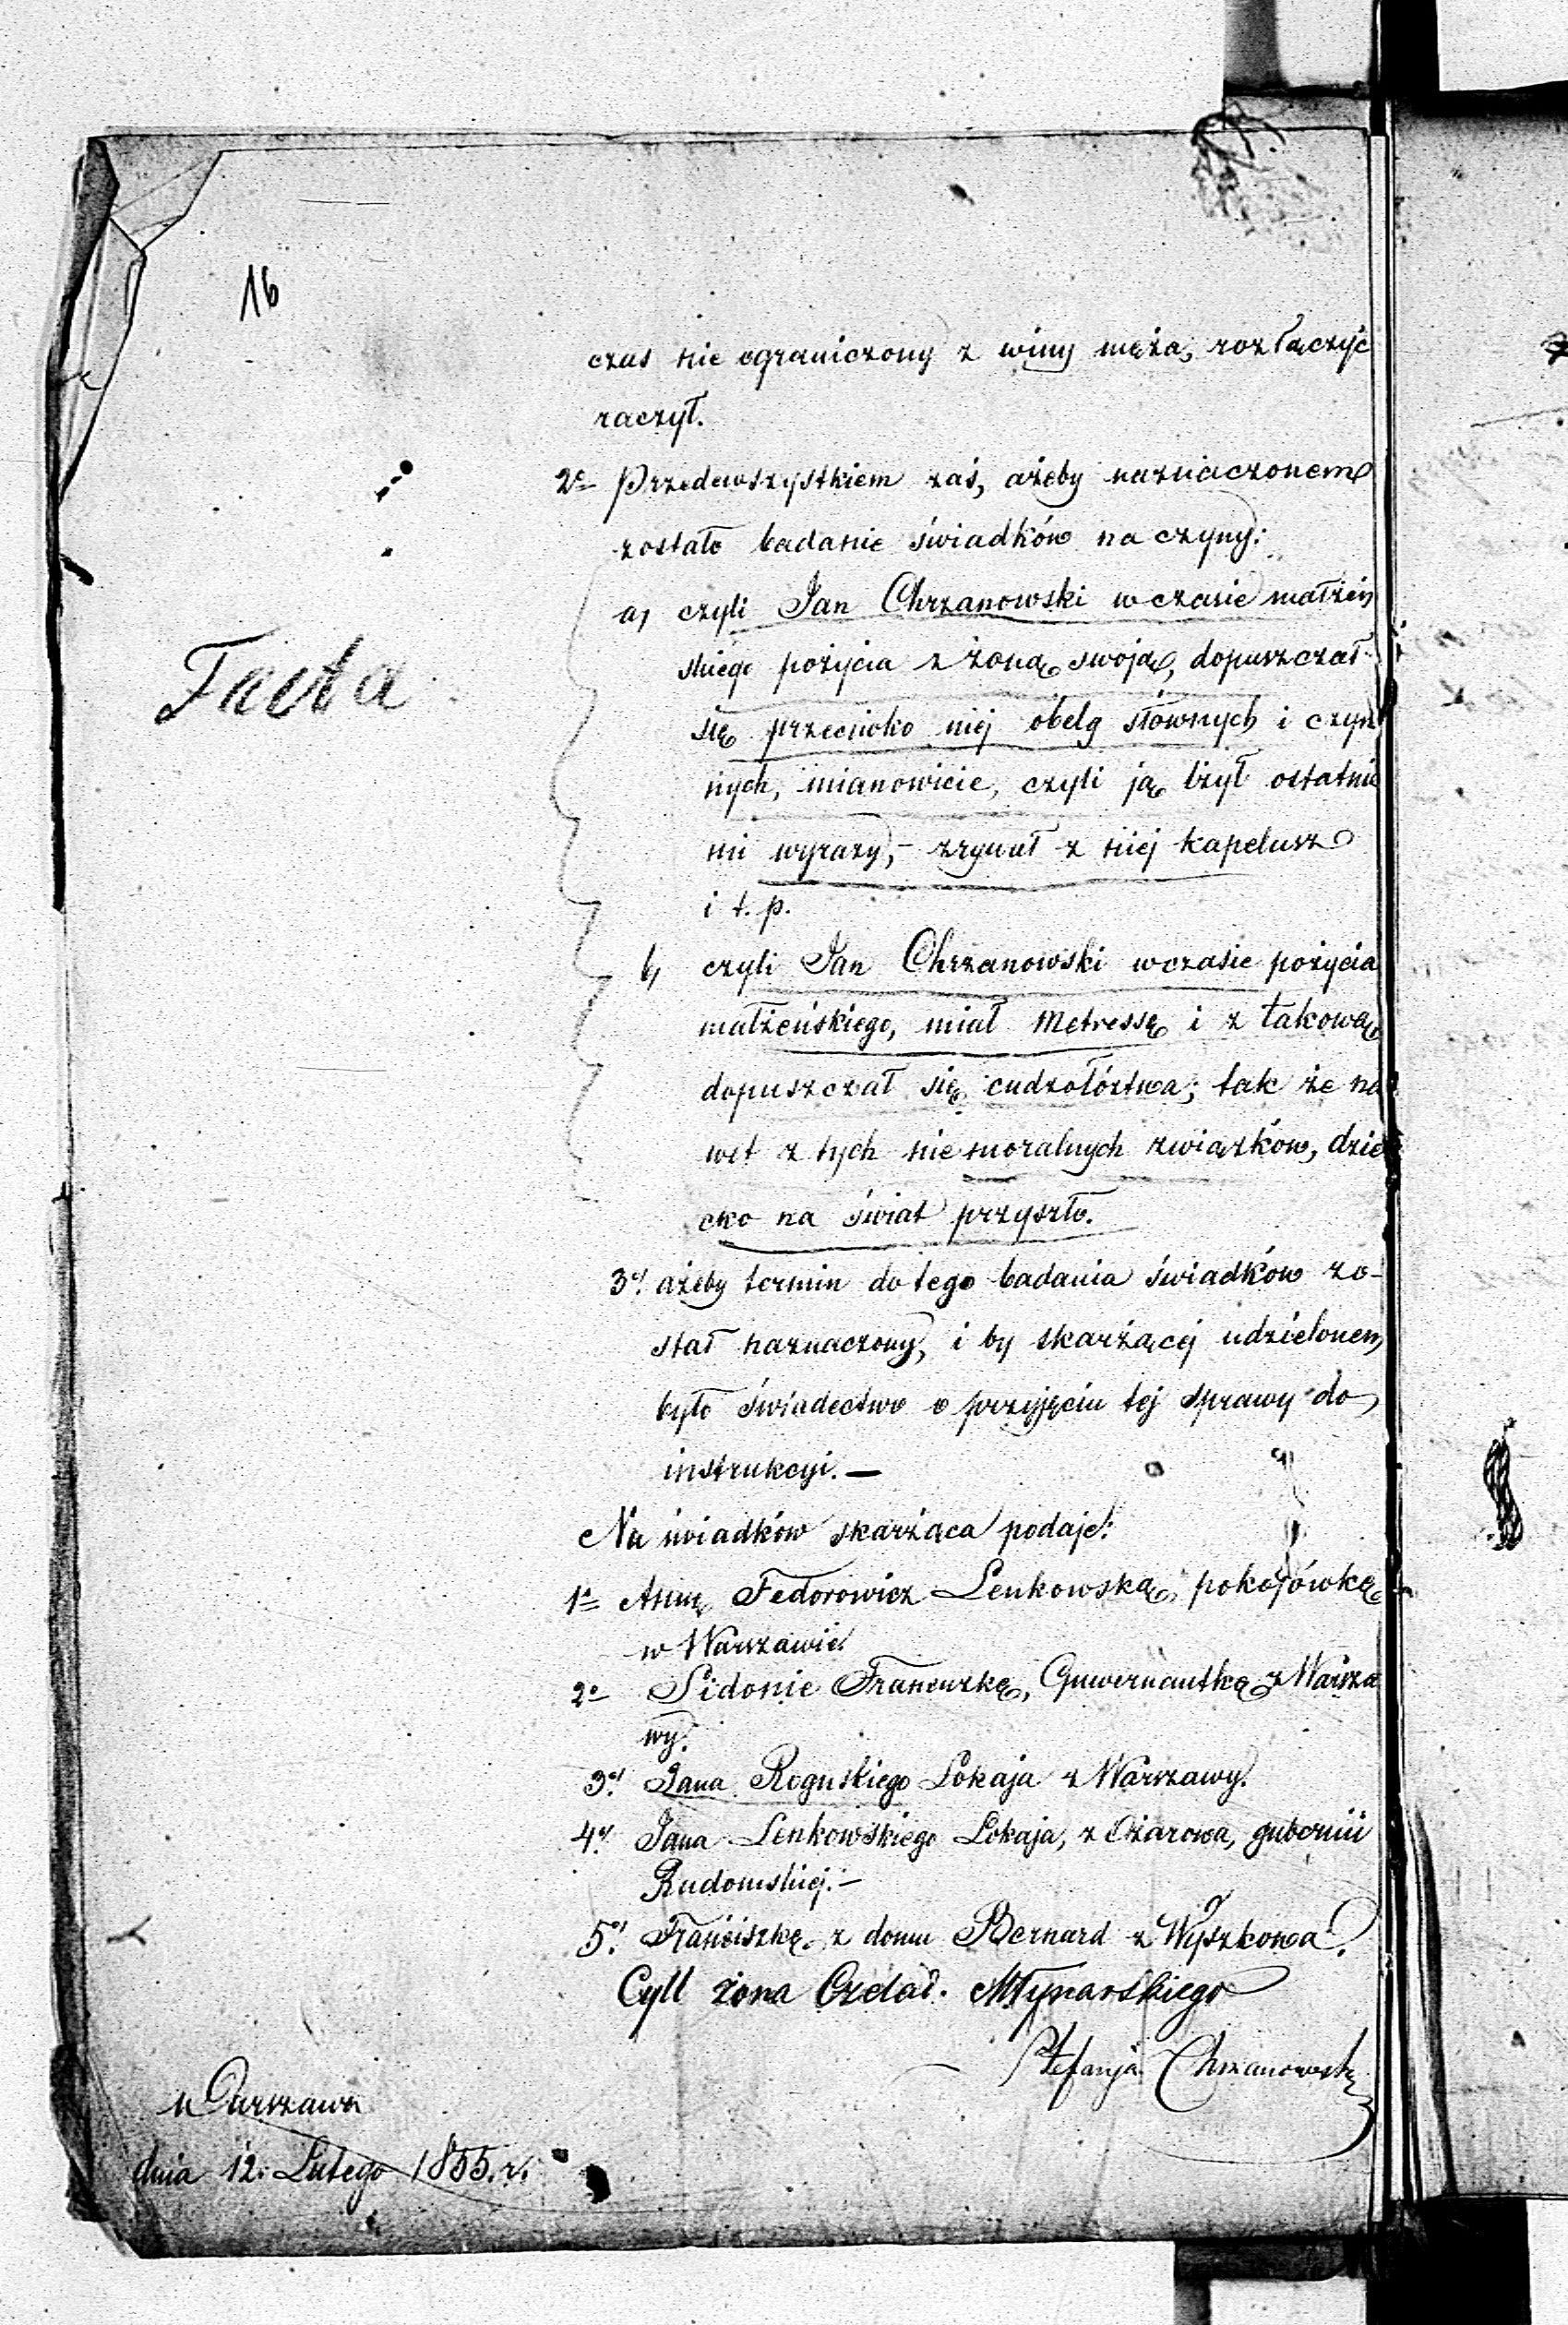 16
czas nie ograniczony z winy męża, rozłączyć
raczył.
2o Przedewszystkiem zaś, ażeby naznaczonem
zostało badanie świadków na czyny:
Facta
a, czyli Jan Chrzanowski w czasie małżeń
skiego pożycia z żoną swoją, dopuszczał
się przeciwko niej obelg słownych i czyn
nych, mianowicie, czyli ją lżył ostatnie
mi wyrazy, – zrywał z niej kapelusz
i t. p.
b, czyli Jan Chrzanowski w czasie pożycia
małżeńskiego, miał Metressę i z takową
dopuszczał się cudzołóztwa; tak że na
wet z tych nie moralnych związków, dzie
cko na świat przyszło.
3o ażeby termin do tego badania świadków zo-
stał naznaczony, i by skarżącej udzielonem
było świadectwo o przyjęciu tej sprawy do
instrukcyi. —
Na świadków skarżąca podaje:
1o Annę Fedorowicz Lenkowską, pokojówkę
w Warszawie
2o Sidonie Francuzkę, Guwernantkę z Warsza
wy.
3o Jana Roguskiego Lokaja z Warszawy.
4o Jana Lenkowskiego Lokaja, z Ożarowa, gubernii
Radomskiej. –
5o Franciszkę z domu Bernard z Wyszkowa.
Cyll żona Czelad. Młynarskiego
Stefanja Chrzanowska
w Warszawa
dnia 12. Lutego 1855. r.